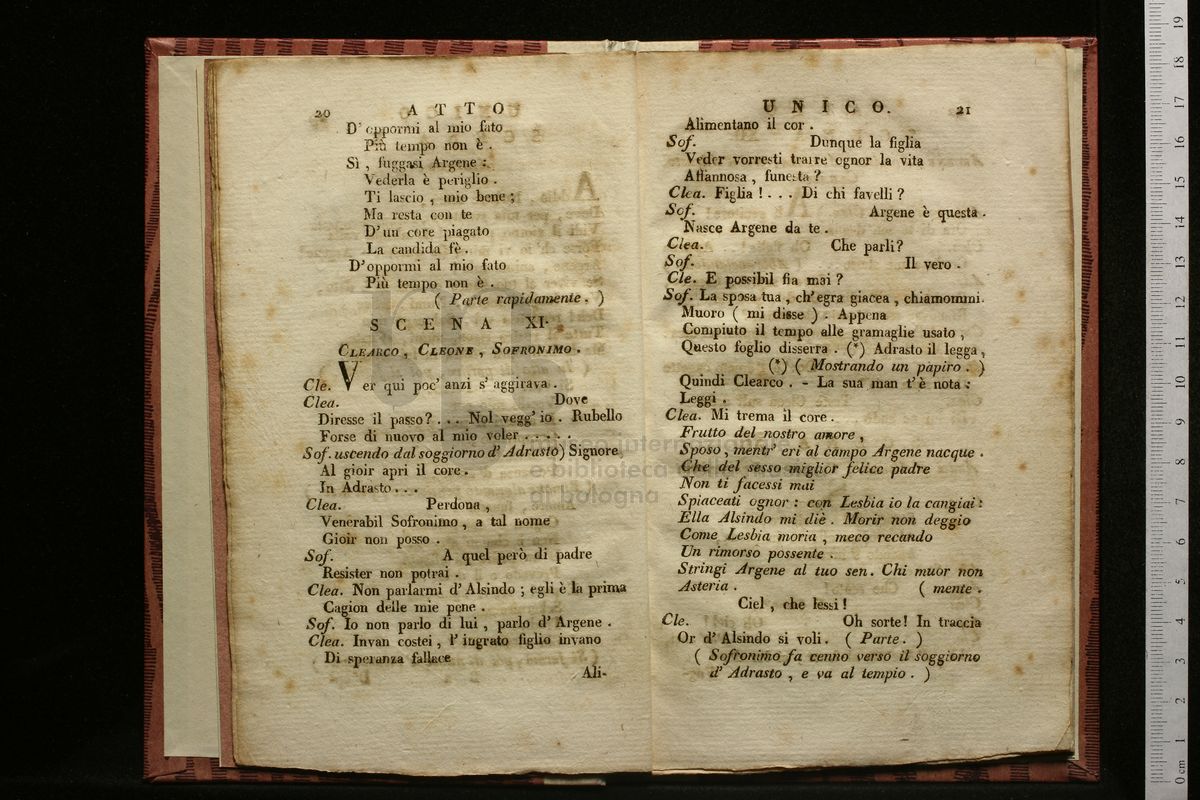 20 ATTO
D' oppormi al mio fato
Più tempo non è .
Sì , fuggasi Argene :
Vederla è periglio .
Ti lascio , mio bene ;
Ma resta con te
D'un core piagato
La candida fè .
D'oppormi al mio fato
Più tempo non è .
( Parte rapidamente . )
SCENA XI.
CLEARCO , CLEONE , SOFRONIMO .
Cle. Ver qui poc' anzi s' aggirava .
Clea. Dove
Diresse il passo? . . . Nol vegg' io . Rubello
Forse di nuovo al mio voler . . . . .
Sof. uscendo dal soggiorno d' Adrasto) Signore,
Al gioir apri il core .
In Adrasto . . .
Clea. Perdona ,
Venerabil Sofronimo , a tal nome
Gioir non posso .
Sof. A quel però di padre
Resister non potrai .
Clea. Non parlarmi d' Alsindo ; egli è la prima
Cagion delle mie pene .
Sof. Io non parlo di lui , parlo d' Argene .
Clea. Invan costei , l' ingrato figlio invano
Di speranza fallace
Ali-
UNICO. 21
Alimentano il cor .
Sof. Dunque la figlia
Veder vorresti trarre ognor la vita
Affannosa , funesta ?
Clea. Figlia ! . . . Di chi favelli ?
Sof. Argene è questa .
Nasce Argene da te .
Clea. Che parli?
Sof. Il vero .
Cle. E possibil fia mai ?
Sof. La sposa tua , ch' egra giacea , chiamommi.
Muoro ( mi disse ) . Appena
Compiuto il tempo alle gramaglie usato ,
Questo foglio disserra . (*) Adrasto il legga ,
(*) ( Mostrando un papiro . )
Quindi Clearco . - La sua man t' è nota :
Leggi .
Clea. Mi trema il core .
Frutto del nostro amore ,
Sposo , mentr' eri al campo Argene nacque .
Che del sesso miglior felice padre
Non ti facessi mai
Spiaceati ognor : con Lesbia io la cangiai :
Ella Alsindo mi diè . Morir non deggio
Come Lesbia moria , meco recando
Un rimorso possente .
Stringi Argene al tuo sen. Chi muor non
Asteria . ( mente .
Ciel , che lessi !
Cle. Oh sorte! In traccia
Or d' Alsindo si voli. ( Parte . )
( Sofronimo fa cenno verso il soggiorno
d' Adrasto , e va al tempio . )
museo internazionale
e biblioteca
di bologna
0 cm 1 2 3 4 5 6 7 8 9 10 11 12 13 14 15 16 17 18 19